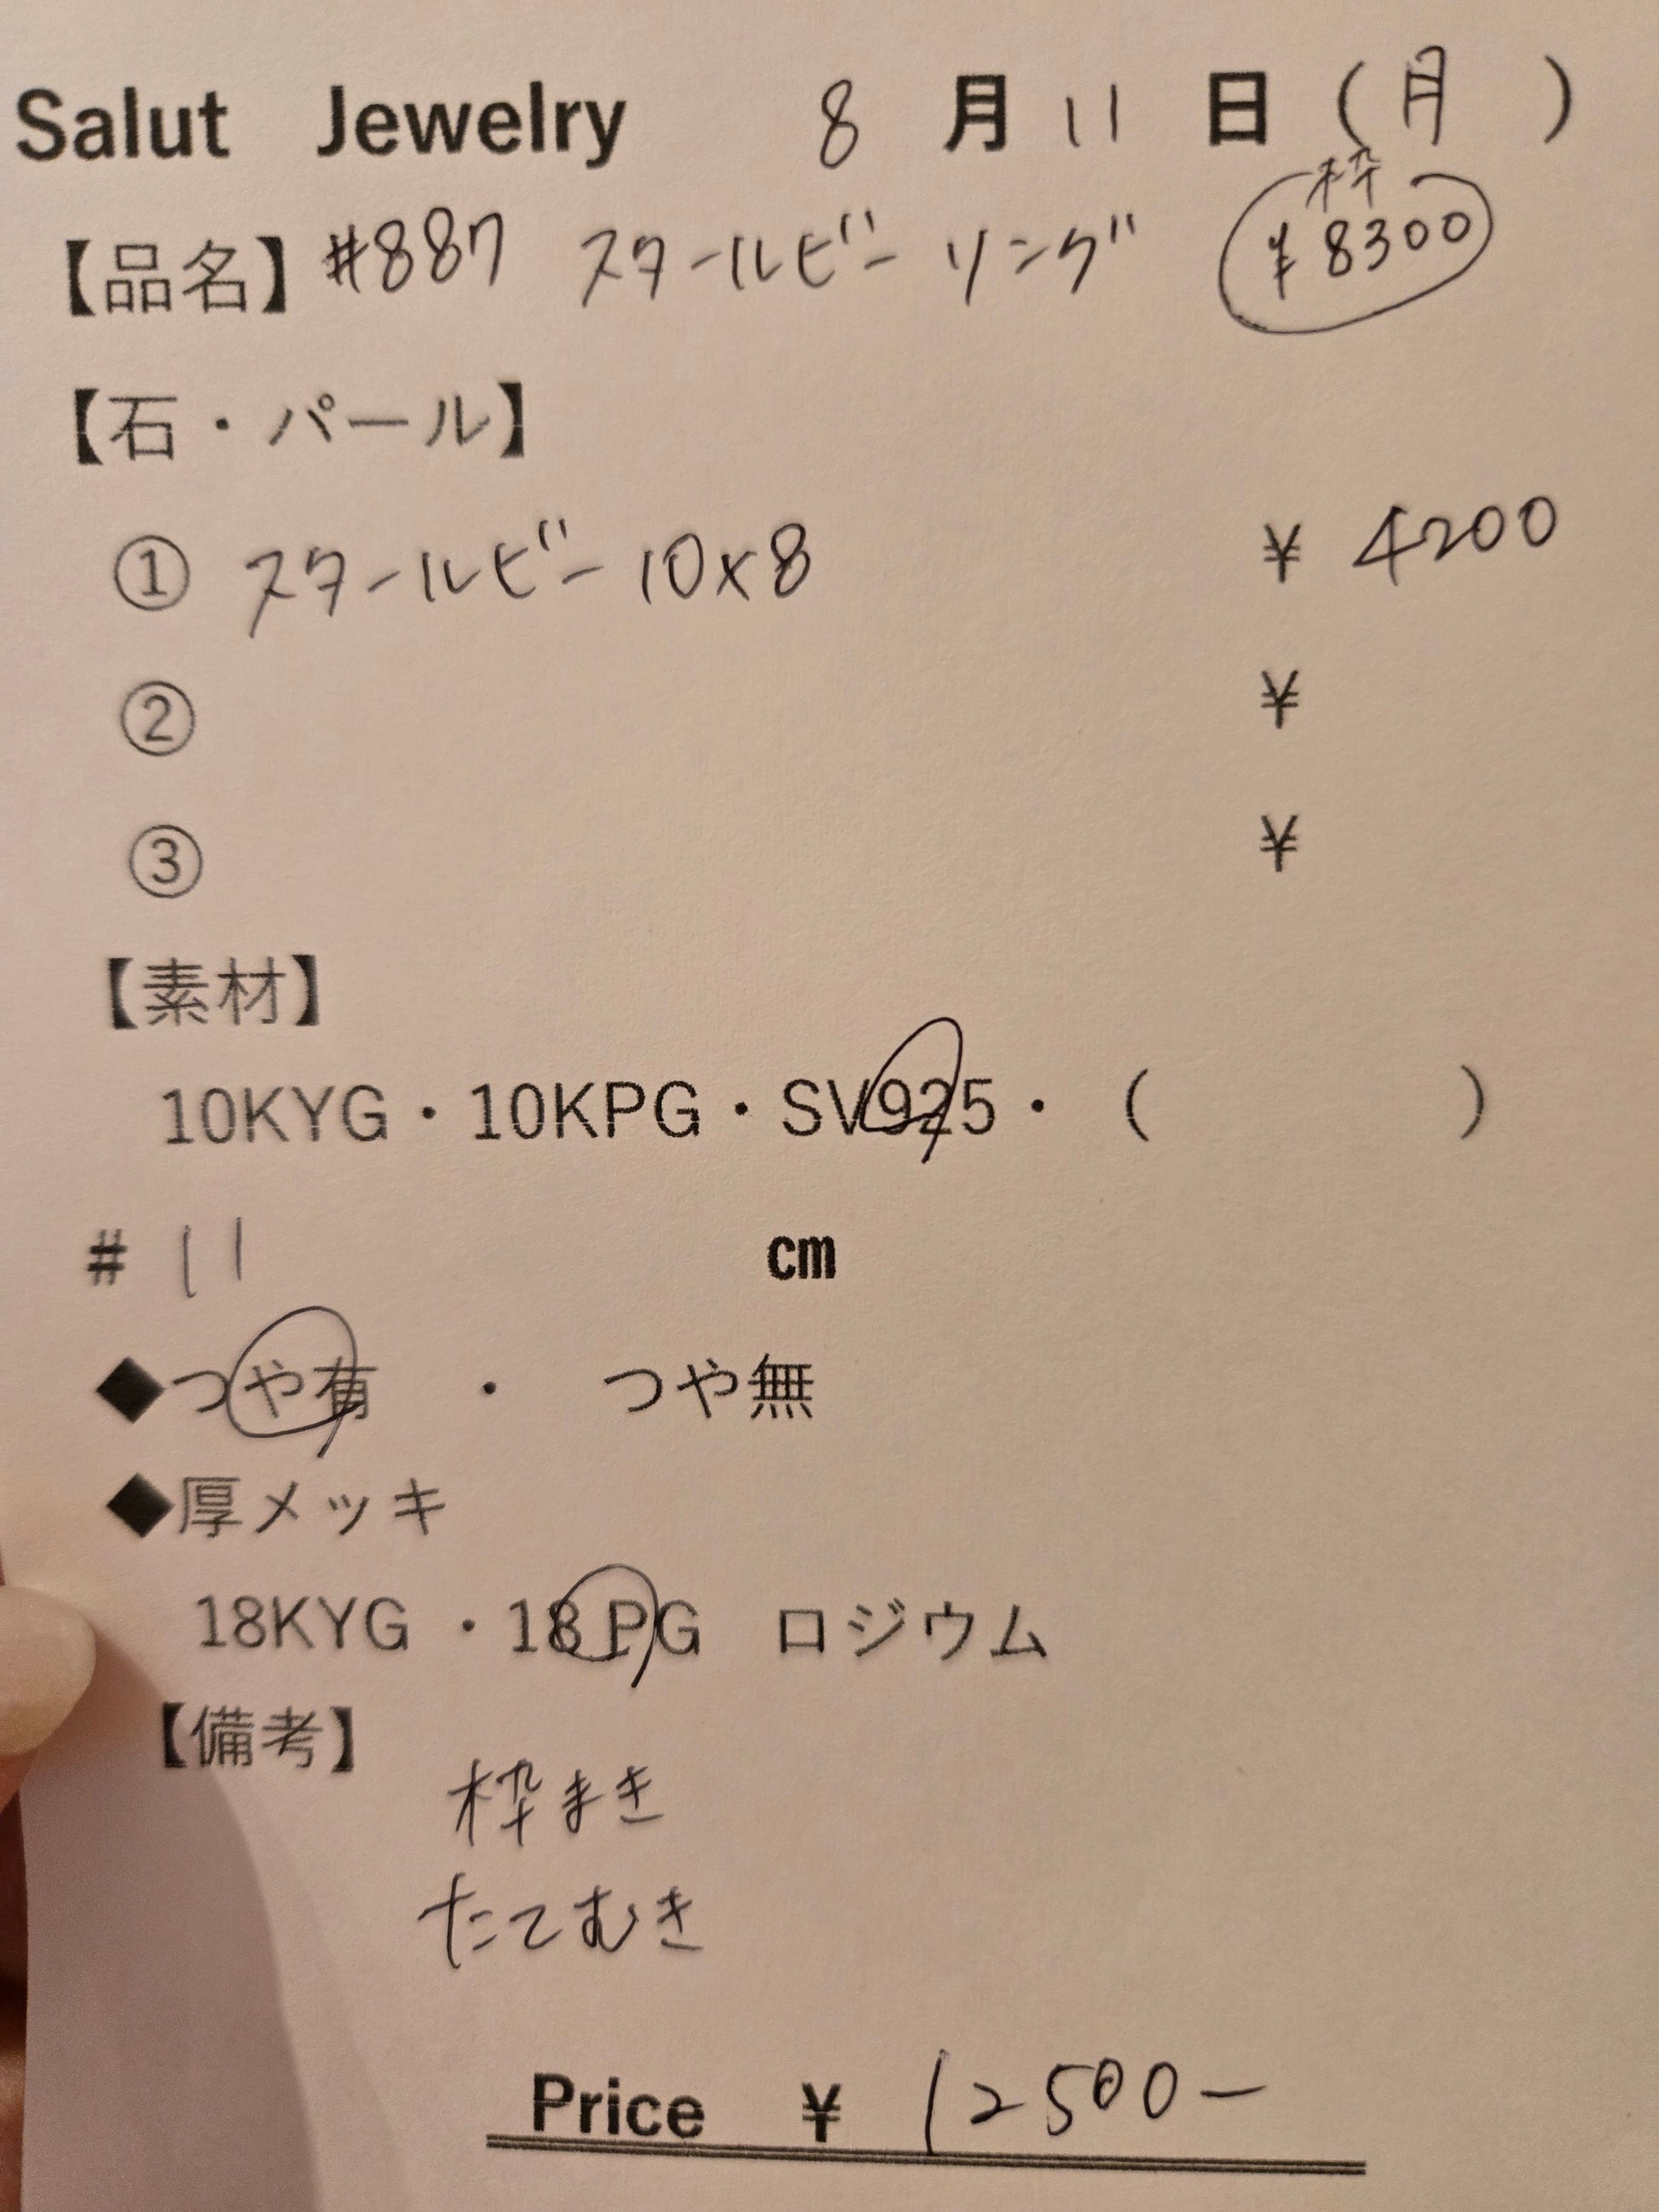 Salut Jewelry 8月11日(月)
枠
【品名】#887 スタールビー リング ¥8300
【石・パール】
① スタールビー 10×8 ¥4200
② ¥
③ ¥
【素材】
10KYG・10KPG・SV925・( )
# 11 cm
◆つや有 ・ つや無
◆厚メッキ
18KYG ・18 PG ロジウム
【備考】
枠まき
たてむき
Price ¥ 12500-